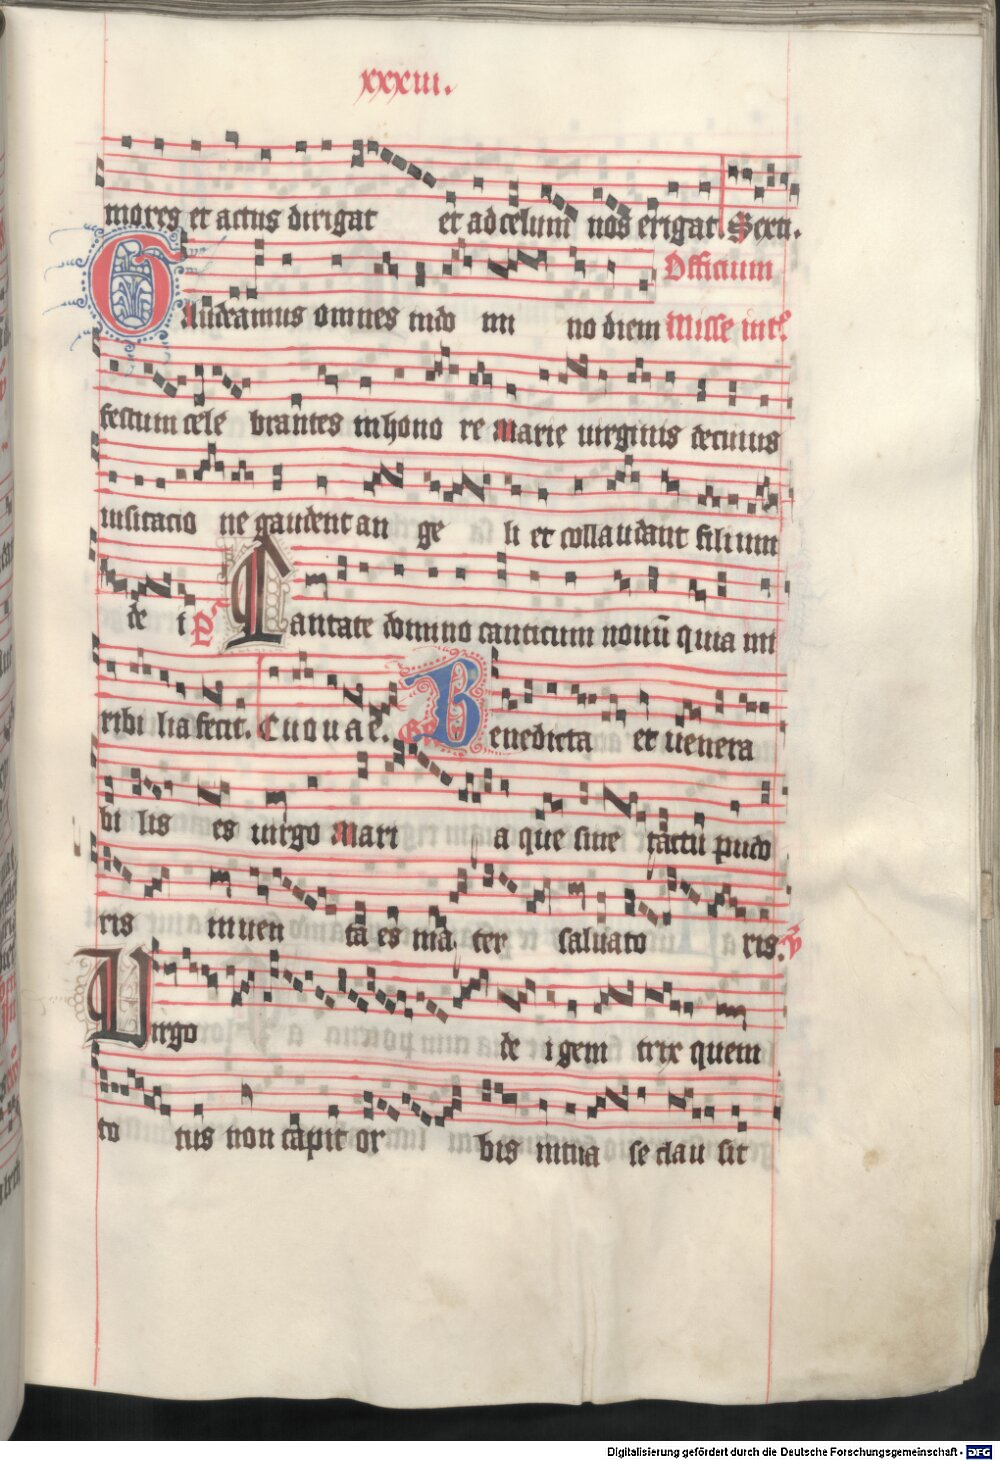 xxxiii.
mores et actus dirigat et ad celum nos erigat. Sexu.
Officium
Gaudeamus omnes in do mi no diem Misse
festum cele brantes in hono re Marie uirginis de cuius
uisitacio ne gaudent an ge li et collaudant filium
de i ps Cantate domino canticum nouū quia mi
ribi lia fecit. Euouae. Benedicta et uenera
bi lis es uirgo Mari a que sine tactu pudo
ris inuen ta es ma ter saluato ris.
Uirgo de i gem trix quem
to tus non capit or bis in tua se clau sit
Digitalisierung gefördert durch die Deutsche Forschungsgemeinschaft - DFG